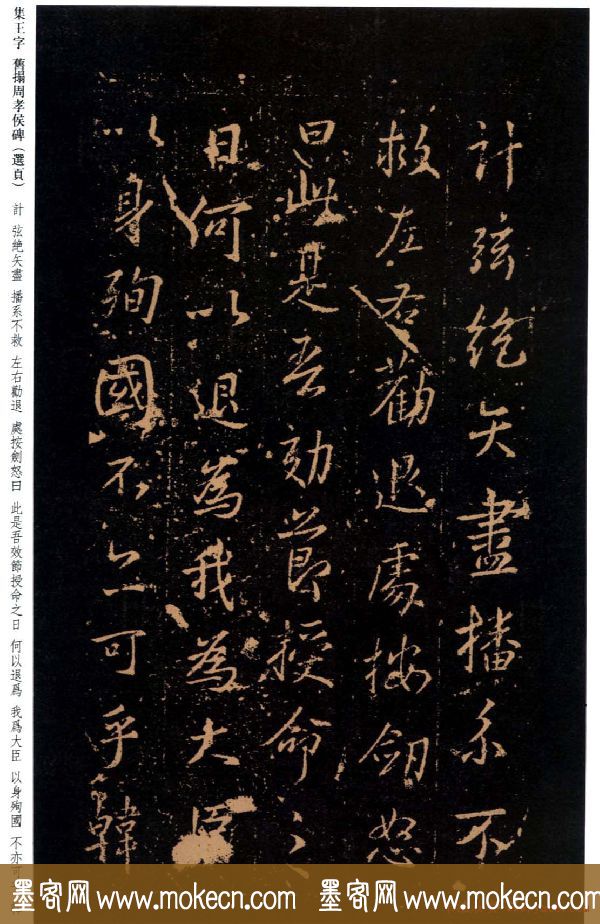 集王字 舊搨周孝侯碑（選頁） 計 弦絶矢盡 播系不救 左右勸退 處按劍怒曰 此是吾效節授命之日 何以退爲 我爲大臣 以身殉國 不亦可
計弦絶矢盡播系不
救左右勸退處按劒怒
曰此是吾効節授命之
日何以退為我為大臣
以身殉國不亦可乎韓
墨客网 www.mokecn.com 墨客网 www.mokecn.com